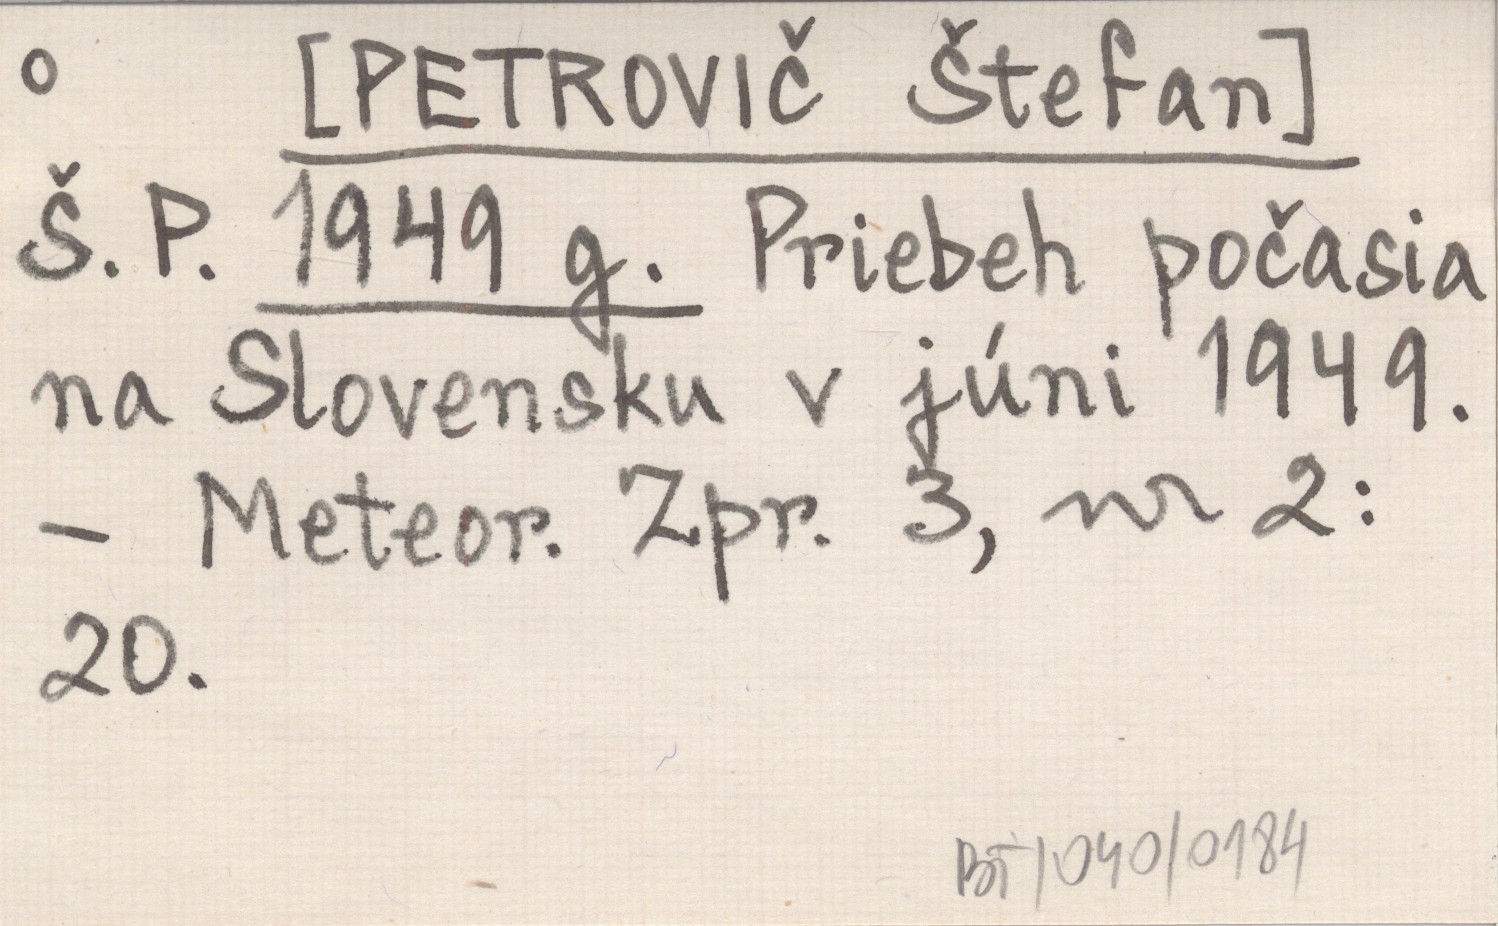 o [PETROVIČ Štefan]
Š.P. 1949 g. Priebeh počasia
na Slovensku v júni 1949.
– Meteor. Zpr. 3, nr 2:
20.
BT/040/0184